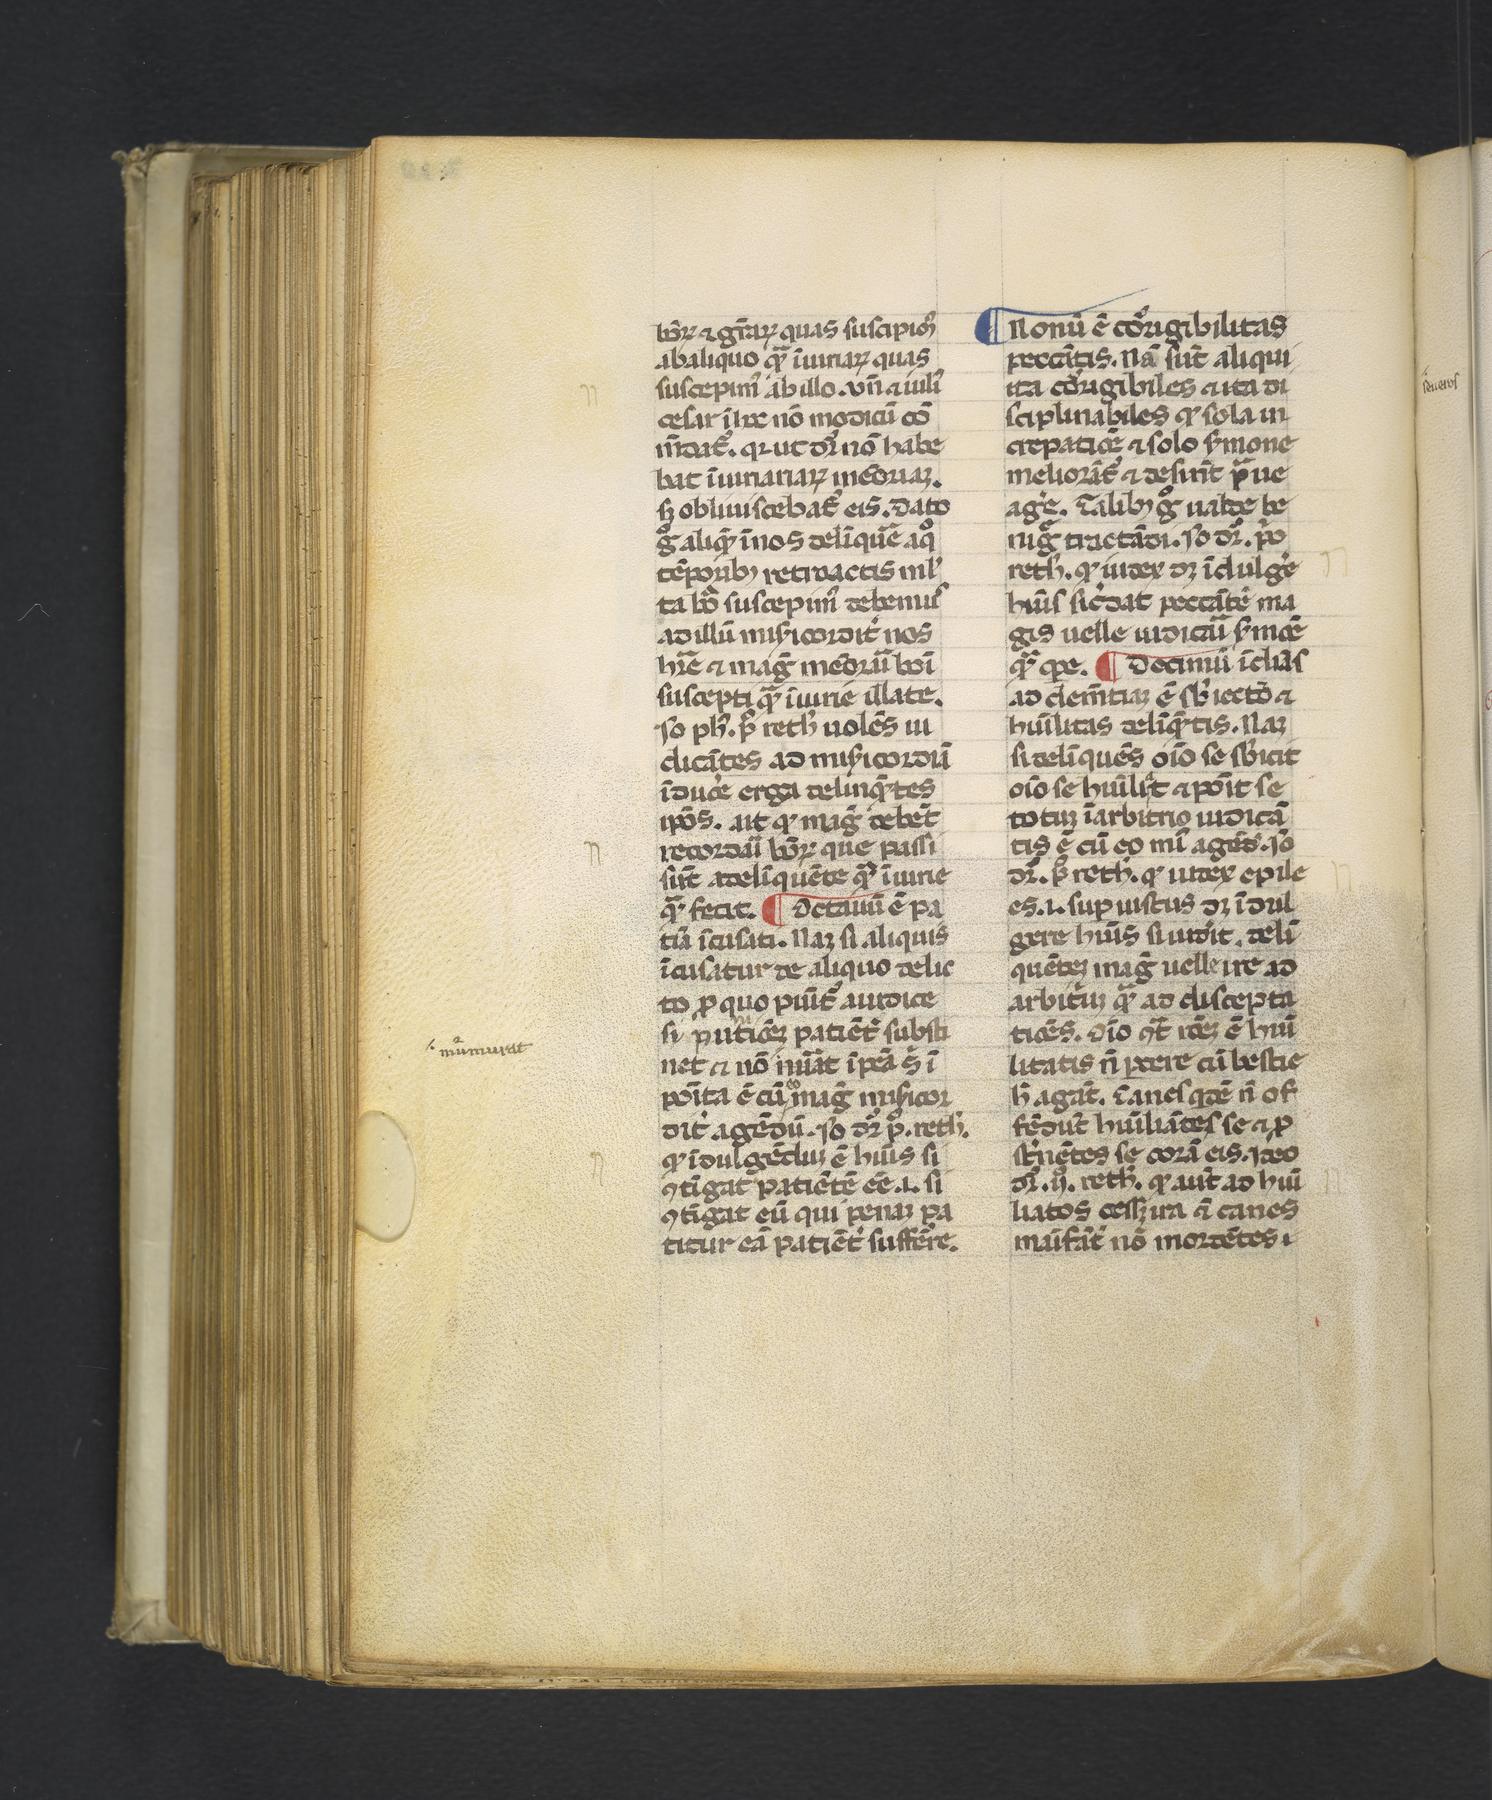 boꝝ ⁊ gr̄aꝝ quas suscipim9
ab aliquo qͣ̄ īiuriaꝝ quas
suscepim9 ab illo. vn̄ ⁊ iuli9
cesar ī hoc nō modicū cō
m̄dat᷑. qꝛ ut dr̄ nō habe
bat īiuriariaꝝ mēoriaꝫ.
sꝫ obliuiscebat᷑ eis. dato
gͦ aliqͥd ī nos delīquē̄ a qͦ
tēporibꝫ retroactis ml̓
ta bōa suscepim9 debemus
ad illū misicordit̓ nos
hr̄e ⁊ mag̓ mēorāī boī
suscepti qͣ̄ īiurie illate.
Jō pħ. pͦ reth̓ uolēs iu
dicātes ad misicordiā
īduc̓e erga delinqͣ̄tes
ip̄os. ait ꝙ mag̓ debēt
recordāī boꝝ que passi
sūt a delīquēte qͣ̄ īiurie
qͣ̄ fecit. ¶ Octauū ē pa
tiā īcusati. Naꝫ si aliquis
īcusatur de aliquo delic
to ꝓ quo pūit᷑ a iudice
si pūitiōeꝫ patiēt̓ susti
net ⁊ nō mūat ī pēa s̓ ī
poīta ē cū eo mag̓ misicor
dit̓ agēdū. Jō dr̄ pͦ. reth̓.
ꝙ īdulgēduꝫ ē hūis si
ꝯtīgat patiētē eē .i. si
ꝯtīgat eū qui penaꝫ pa
titur eā patiēt̓ suffērre.
.mͬmurat
¶ Nonū ē cōrigibilitas
peccātis. Nā sūt aliqui
ita cōrigibiles ⁊ ita di
sciplinabiles ꝙ sola in
crepatiōē ⁊ solo s̓mone
meliorāt᷑ ⁊ desinūt pͣue
ag̓e. Talibꝫ gͦ ualde be
nig̓ tractādi. Jō dr̄. pͦo
reth̓. ꝙ iudex dꝫ īdulg̓e
hūis sic̓ dat peccātē ma
gis uelle iudiciū s̓mōē
qͣ̄ ope. ¶ Decimū īcliās
ad clem̄tiaꝫ ē sb̓iectō ⁊
hūilitas delīqͣ̄tis. Naꝫ
si delīquēs oīo se sb̓icit
oīo se hūiliat ⁊ pōit se
totuꝫ ī arbitrio iudicā
tis ē cū eo mī agēd. Jō
dr̄. pͦ reth̓. ꝙ iudex epile
es .i. sup iustus dꝫ īdul
gere hūis si uid̓it. delī
quēteꝫ mag̓ uelle ire ad
arbit̓uꝫ qͣ̄ ad discepta
tiōēs. Oīo ꝯt̓ rōeꝫ ē hūi
litatis n̄ pc̄ere cū bestie
h̓ agāt. Canes qͥdē n̄ of
fēdūt hūiliātes se ⁊ ꝓ
st̓nētes se corā eis. ideo
dr̄. ij. reth̓. ꝙ aūt ad hūi
liatos cessꝫ ira ⁊ canes
māifāt̓ nō mordētes .i.
.seueros